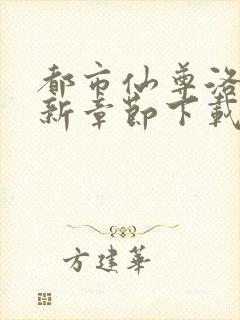 都市仙尊洛
新章節下載
方建華